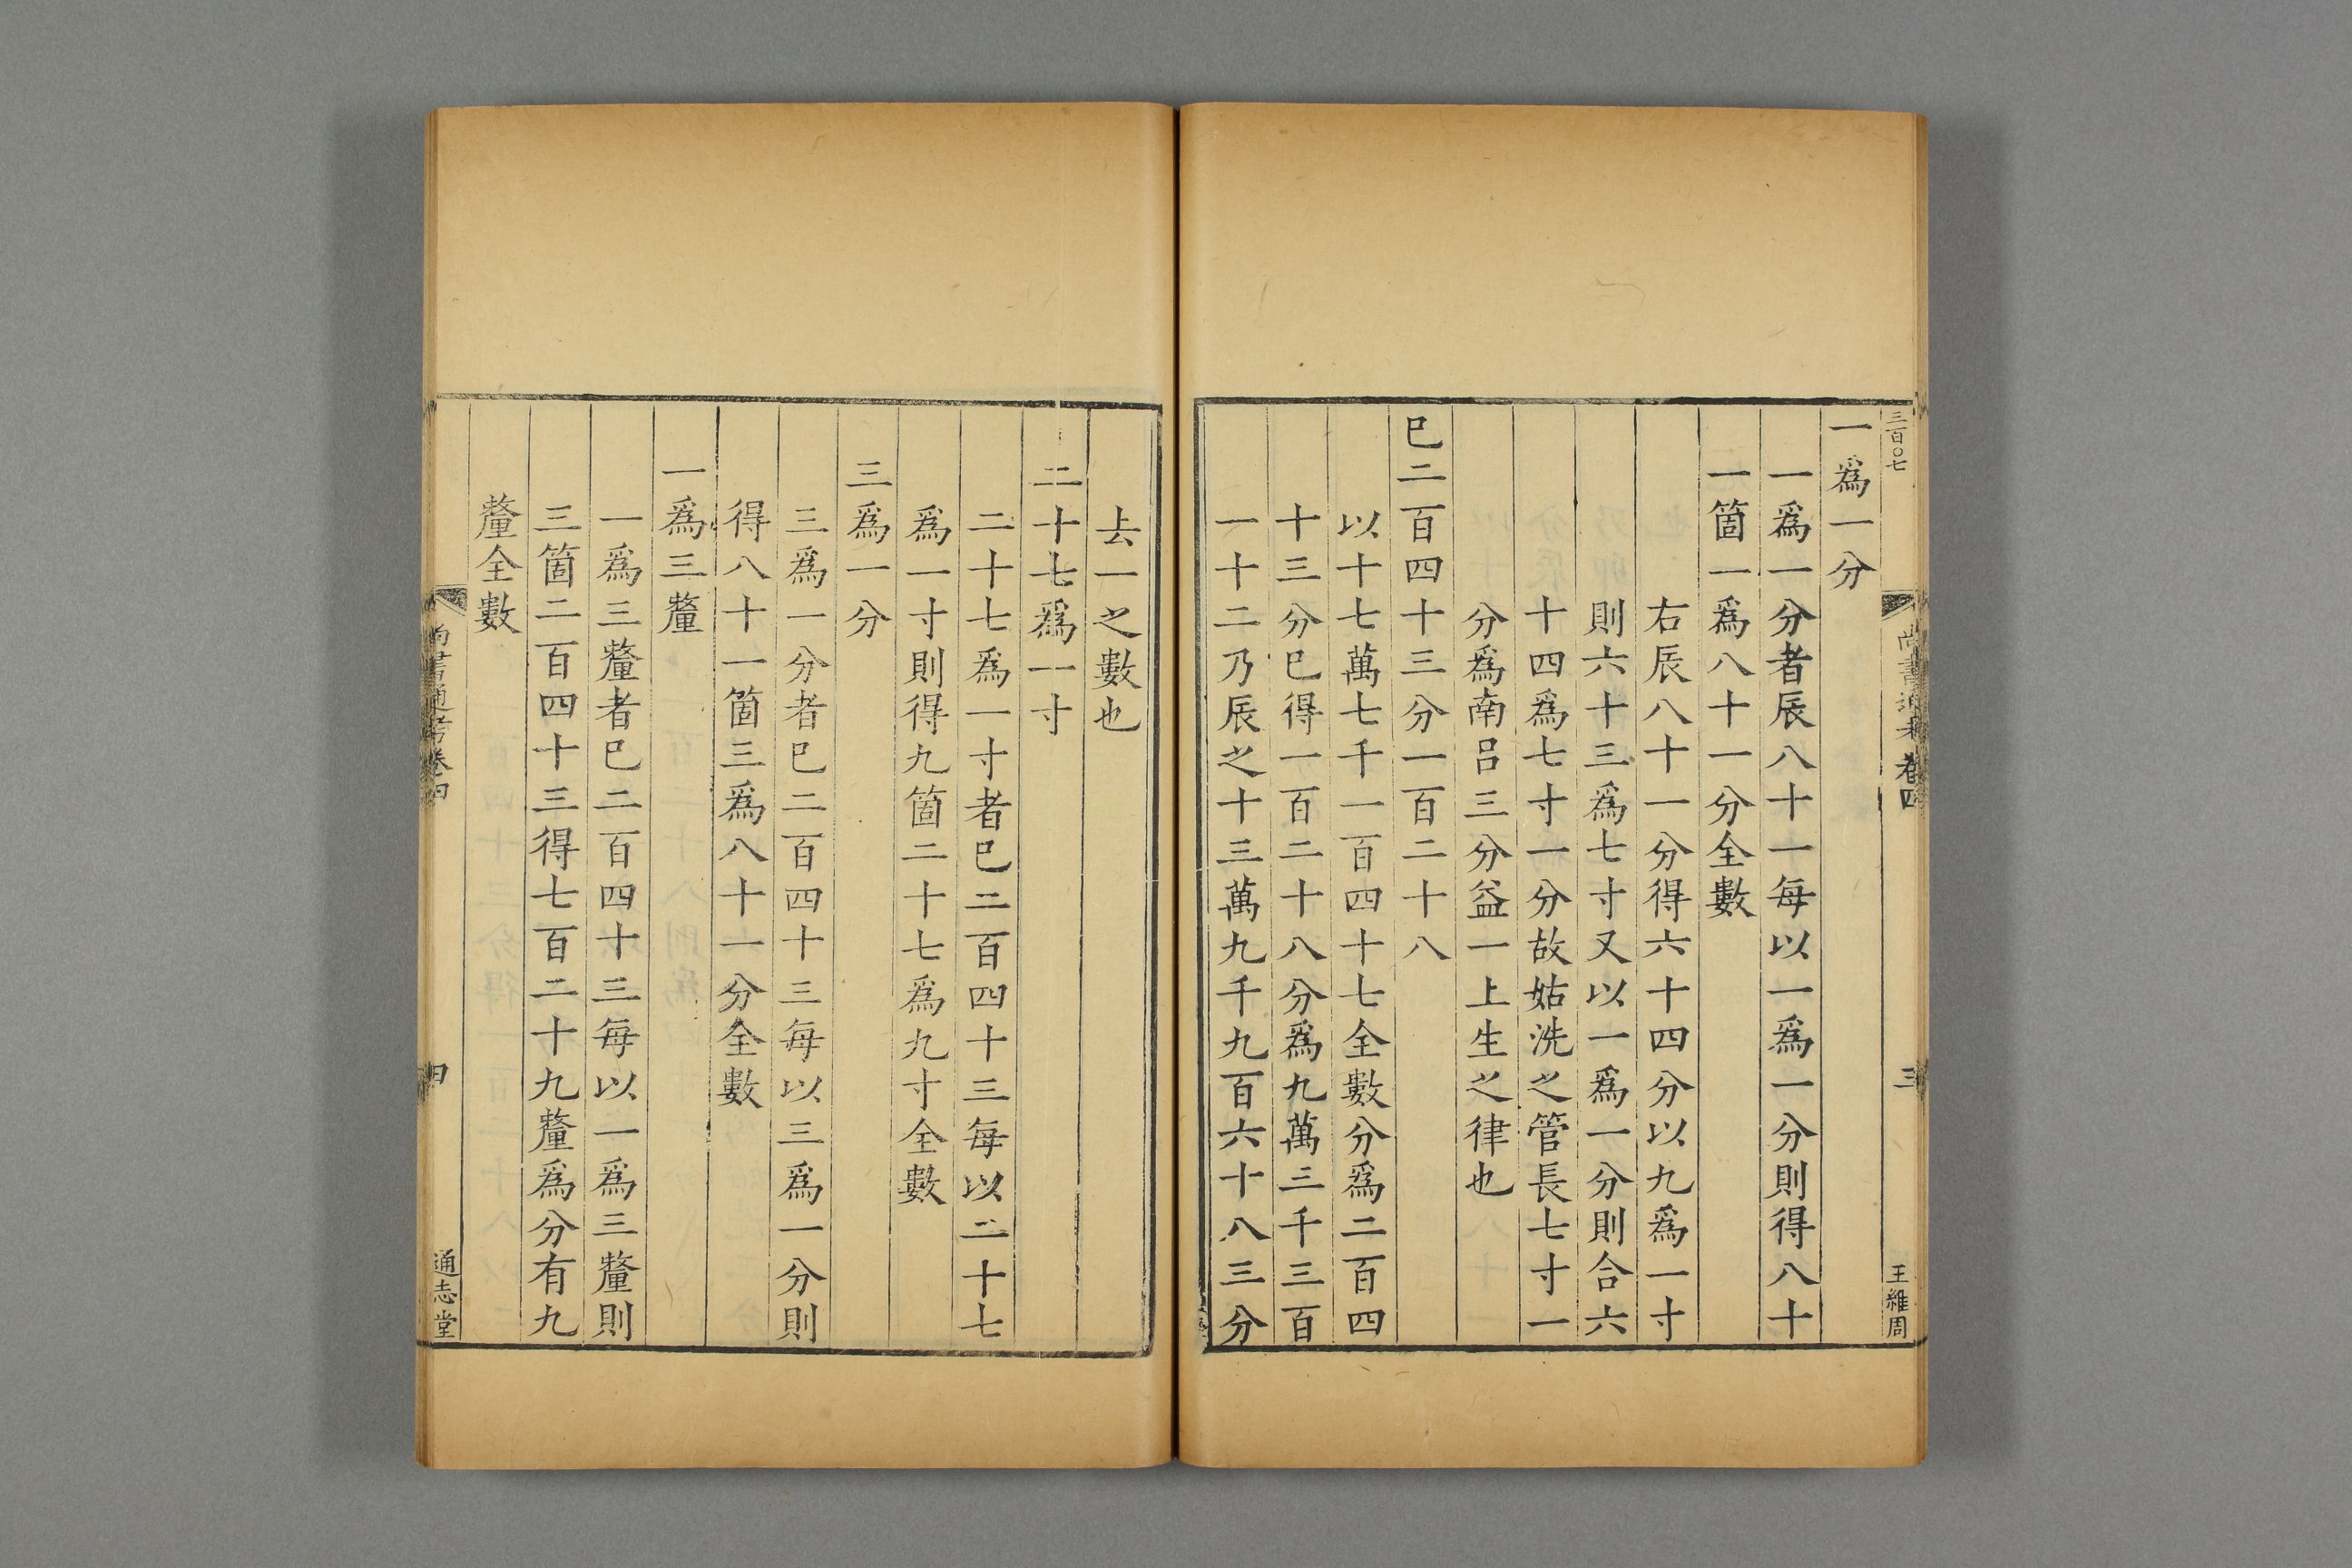 三百〇七
尚書通考卷四
三
王維周
一爲一分
一爲一分者辰八十一每以一爲一分則得八十
一箇一爲八十一分全數
右辰八十一分得六十四分以九爲一寸
則六十三爲七寸又以一爲一分則合六
十四爲七寸一分故姑洗之管長七寸一
分爲南呂三分益一上生之律也
巳二百四十三分一百二十八
以十七萬七千一百四十七全數分爲二百四
十三分巳得一百二十八分爲九萬三千三百
一十二乃辰之十三萬九千九百六十八三分
去一之數也
二十七爲一寸
二十七爲一寸者巳二百四十三每以二十七
爲一寸則得九箇二十七爲九寸全數
三爲一分
三爲一分者巳二百四十三每以三爲一分則
得八十一箇三爲八十一分全數
一爲三釐
一爲三釐者巳二百四十三每以一爲三釐則
三箇二百四十三得七百二十九釐爲分有九
釐全數
尚書通考卷四
四
通志堂